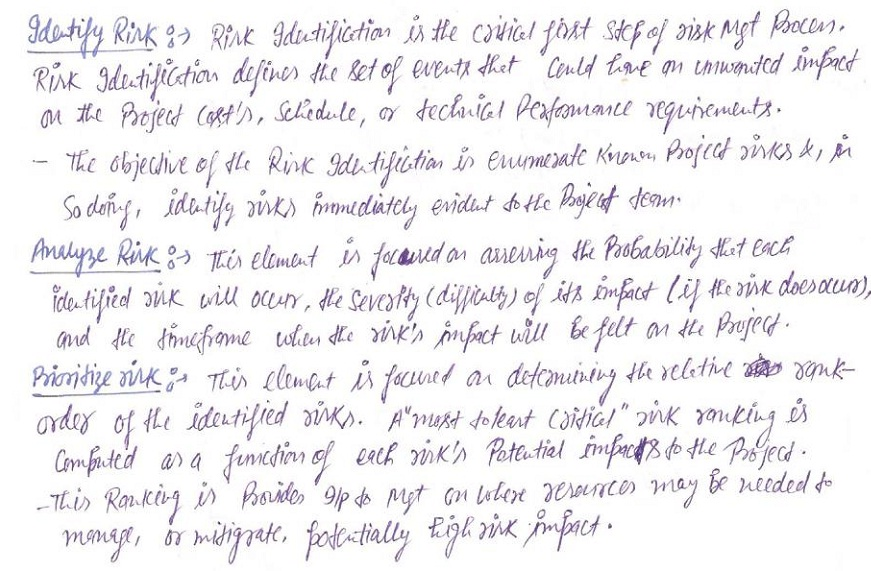 Identify Risk :→ Risk Identification is the critical first step of risk Mgt Process.
Risk Identification defines the set of events that could have an unwanted impact
on the Project cost's, Schedule, or technical Performance requirements.
- The objective of the Risk Identification is enumerate Known Project risks &, in
So doing, identify risks immediately evident to the Project team.
Analyze Risk :→ This element is focused on assessing the Probability that each
identified risk will occur, the Severity (difficulty) of its impact (if the risk does occur),
and the timeframe when the risk's impact will be felt on the Project.
Prioritize risk :→ This element is focused on determining the relative rank-
order of the identified risks. A "most to least Critical" risk ranking is
Computed as a function of each risk's Potential impacts to the Project.
- This Ranking is Provides I/p to Mgt on where resources may be needed to
manage, or mitigrate, potentially high risk impact.